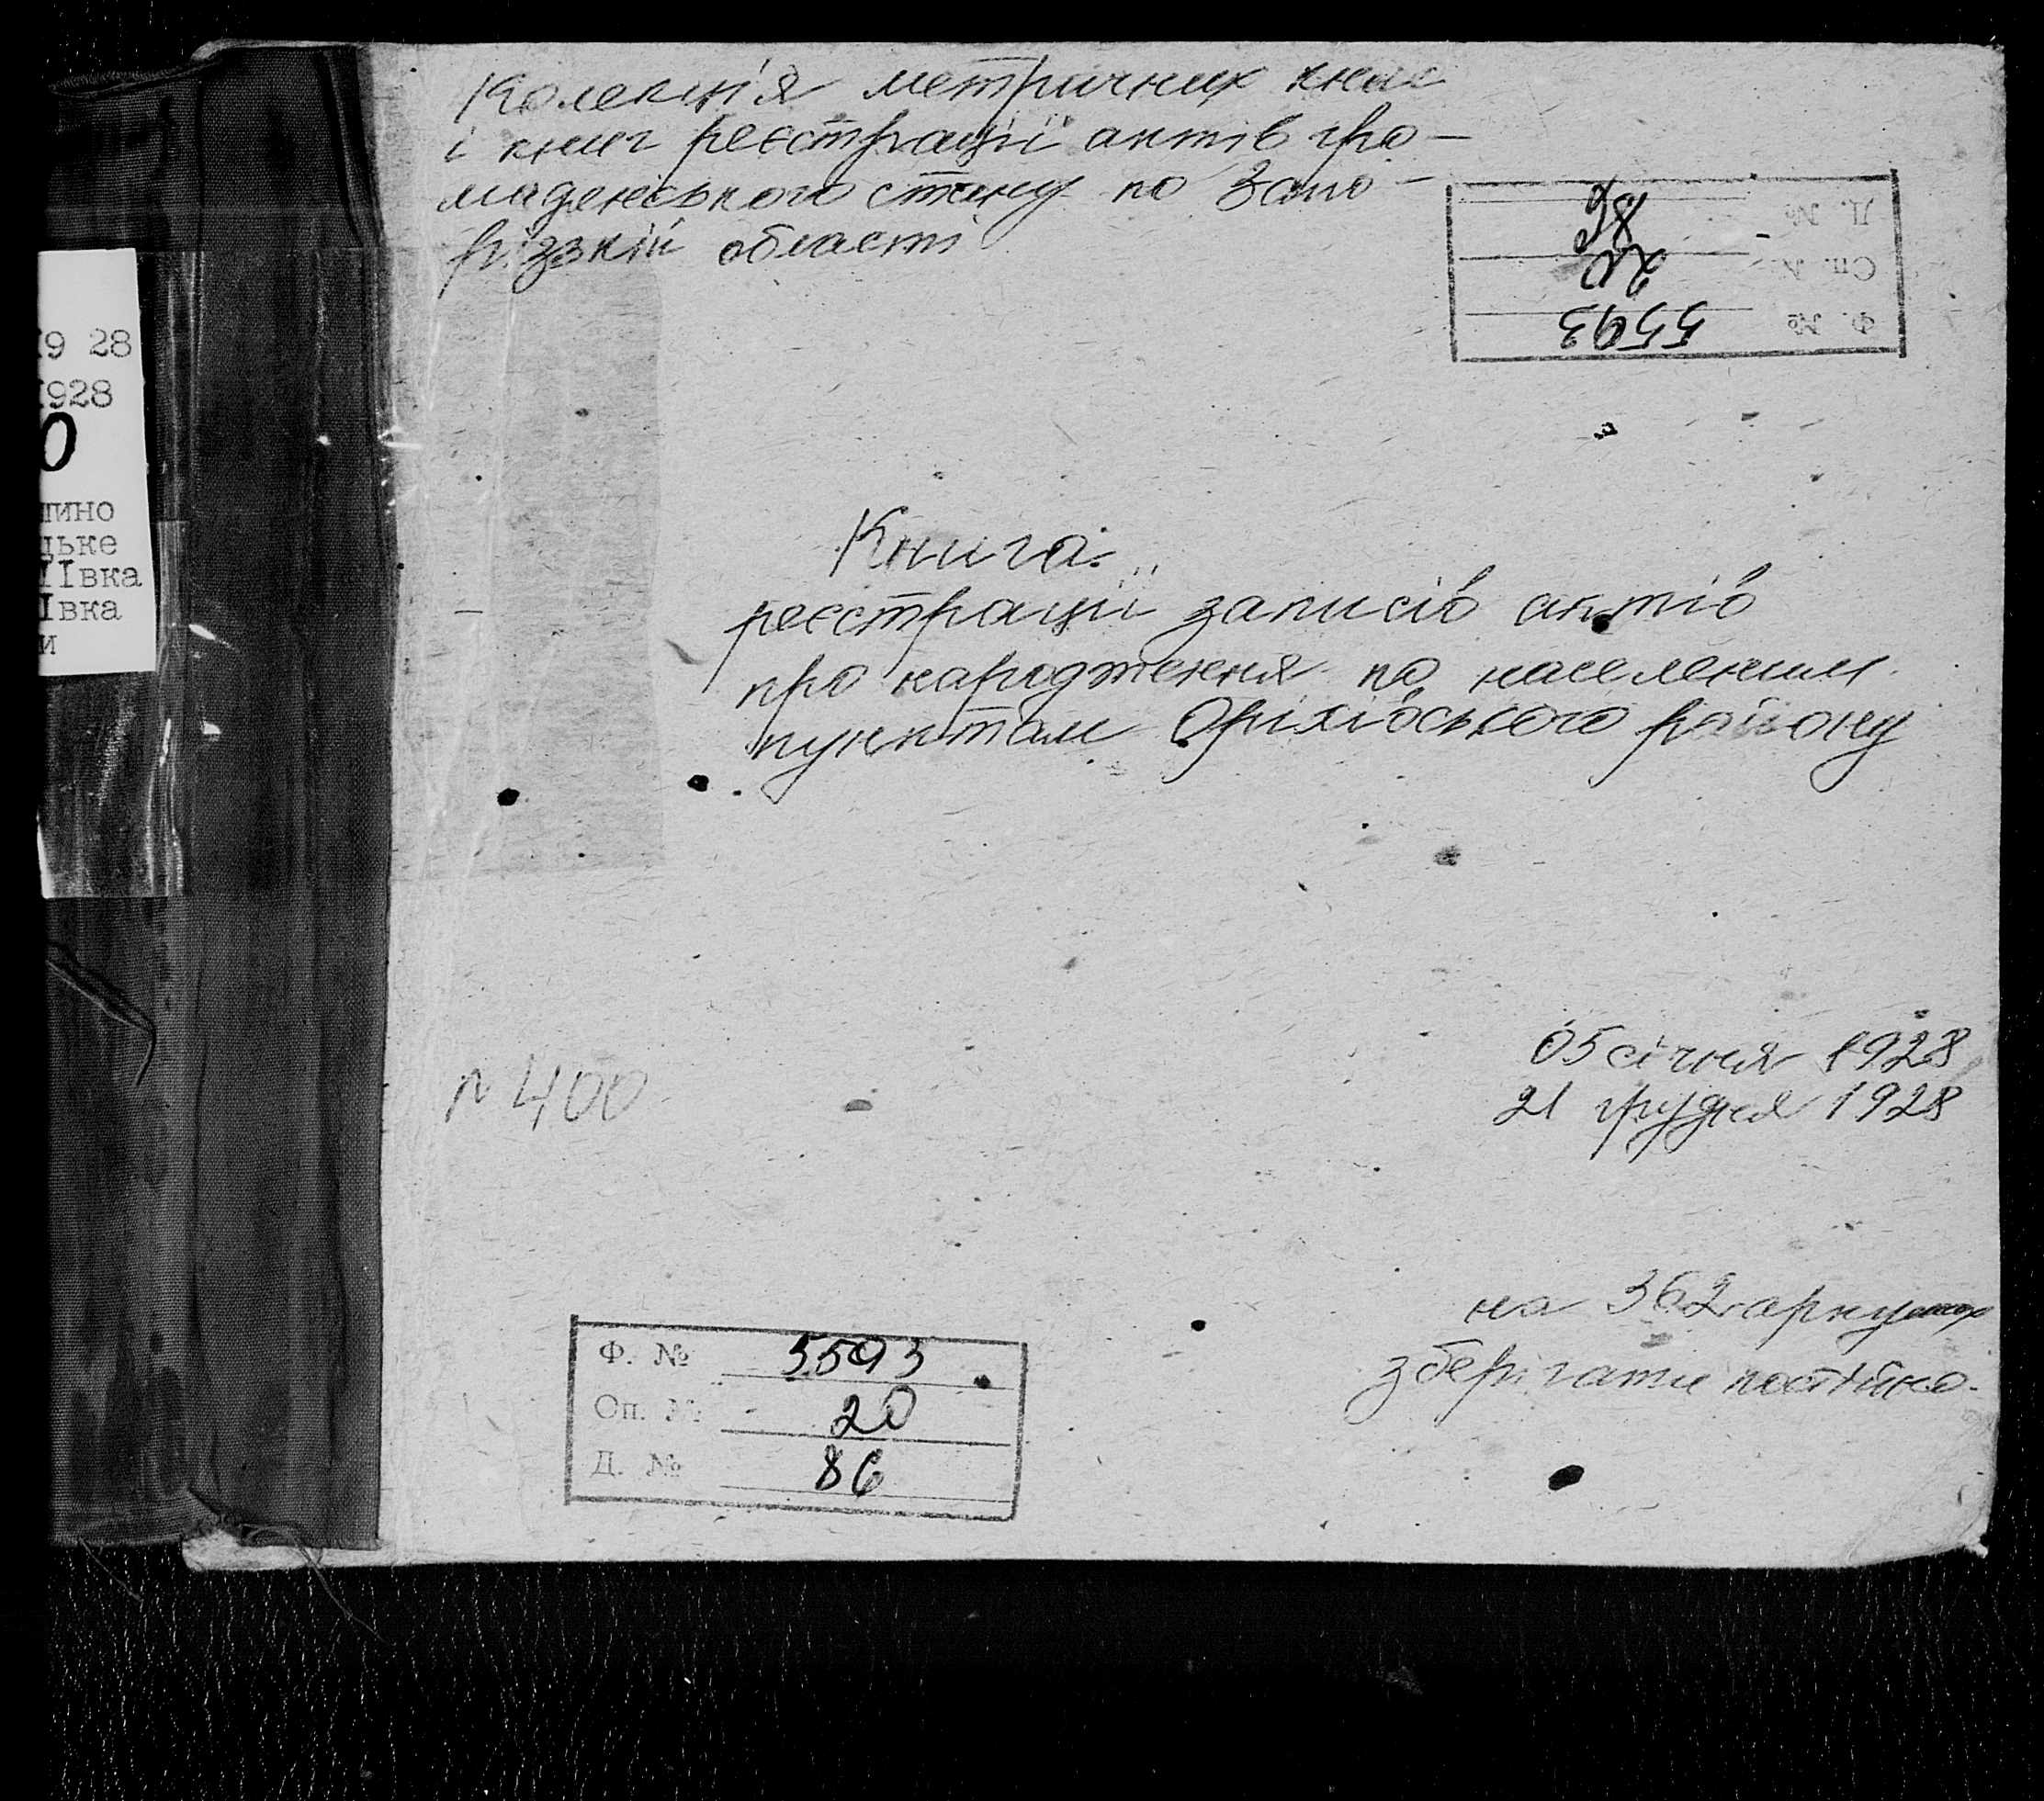 Колекція метричних книг
і книг реєстрації актів гро-
мадянського стану по Запо-
різькій області
Д. № 86
Оп. № 20
Ф. № 5593
19 28
1928
0
пино
цьке
ІІвка
Івка
и
Книга
реєстрації записів актів
про народження по населеним
пунктам Оріхівського району
05 січня 1928
21 грудня 1928
№ 400
на 362 аркушах
зберігати постійно.
Ф. № 5593
Оп. № 20
Д. № 86